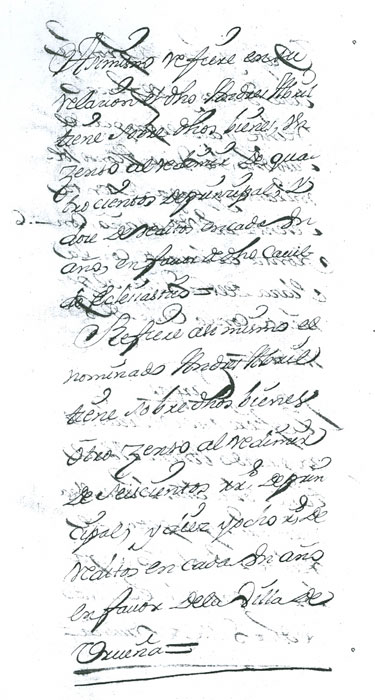 Asimismo refiere en su
relacion q.e dho Andres Abril
tiene sobre dhos bienes un
zenso al redimir de qua
trocientos de principal, y
doze de reditos en cada un
año, en favor de dho Cavil
do Eclesiastico =
Refiere asimismo el
nominado Andres Abril
tiene sobre dhos bienes
otro zenso al redimir
de seiscientos rr.s de prin
cipal, y diez y ocho r.s de
reditos en cada un año
en favor de la Villa de
Urueña =